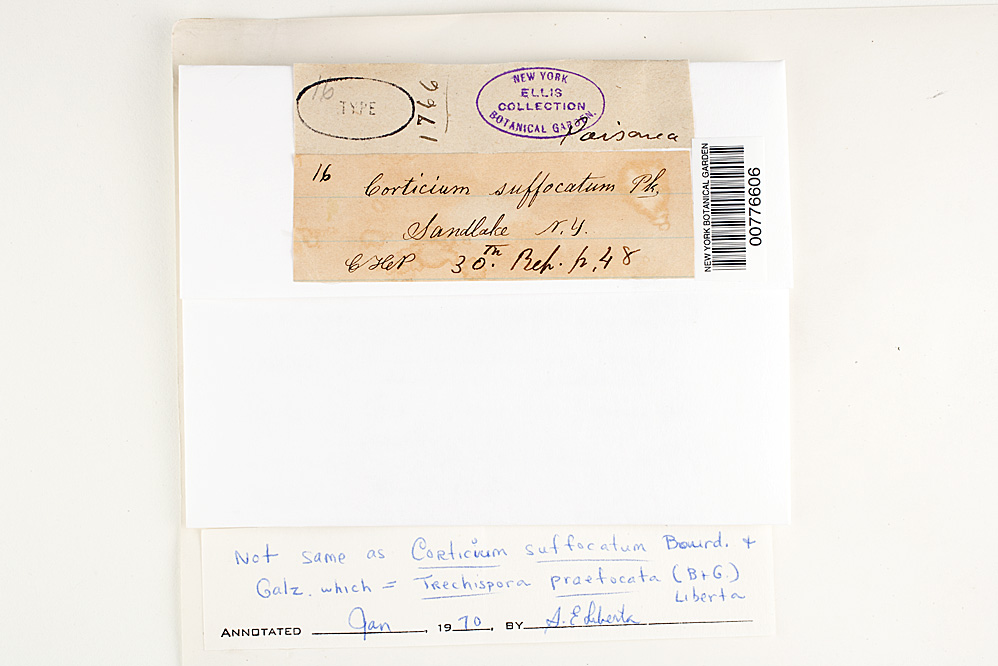 16
TYPE
1766
NEW YORK
ELLIS
COLLECTION
BOTANICAL GARDEN.
16 Corticium suffocatum Pk.
Sandlake N.Y.
CHP 30th. Rep. p. 48
NEW YORK BOTANICAL GARDEN
00776606
Not same as Corticium suffocatum Bourd. +
Galz. which = Trechispora praefocata (B+G.)
Liberta
ANNOTATED Jan, 1970, BY A. E. Liberta